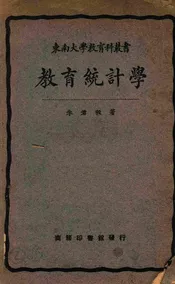 東南大學教育科叢書
教育統計學
著
商務印書館發行